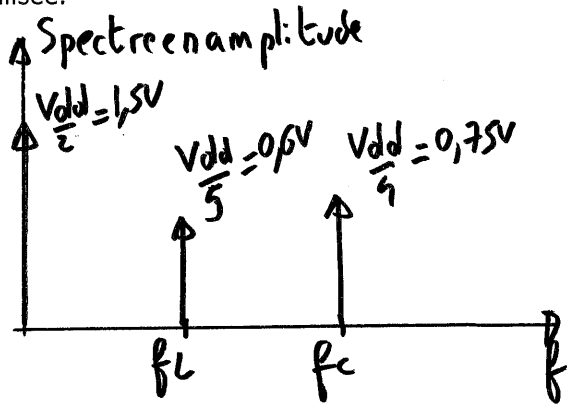 misée.
Spectre en amplitude
Vdd/2 = 1,5V
Vdd/5 = 0,6V
Vdd/4 = 0,75V
fL
fc
f